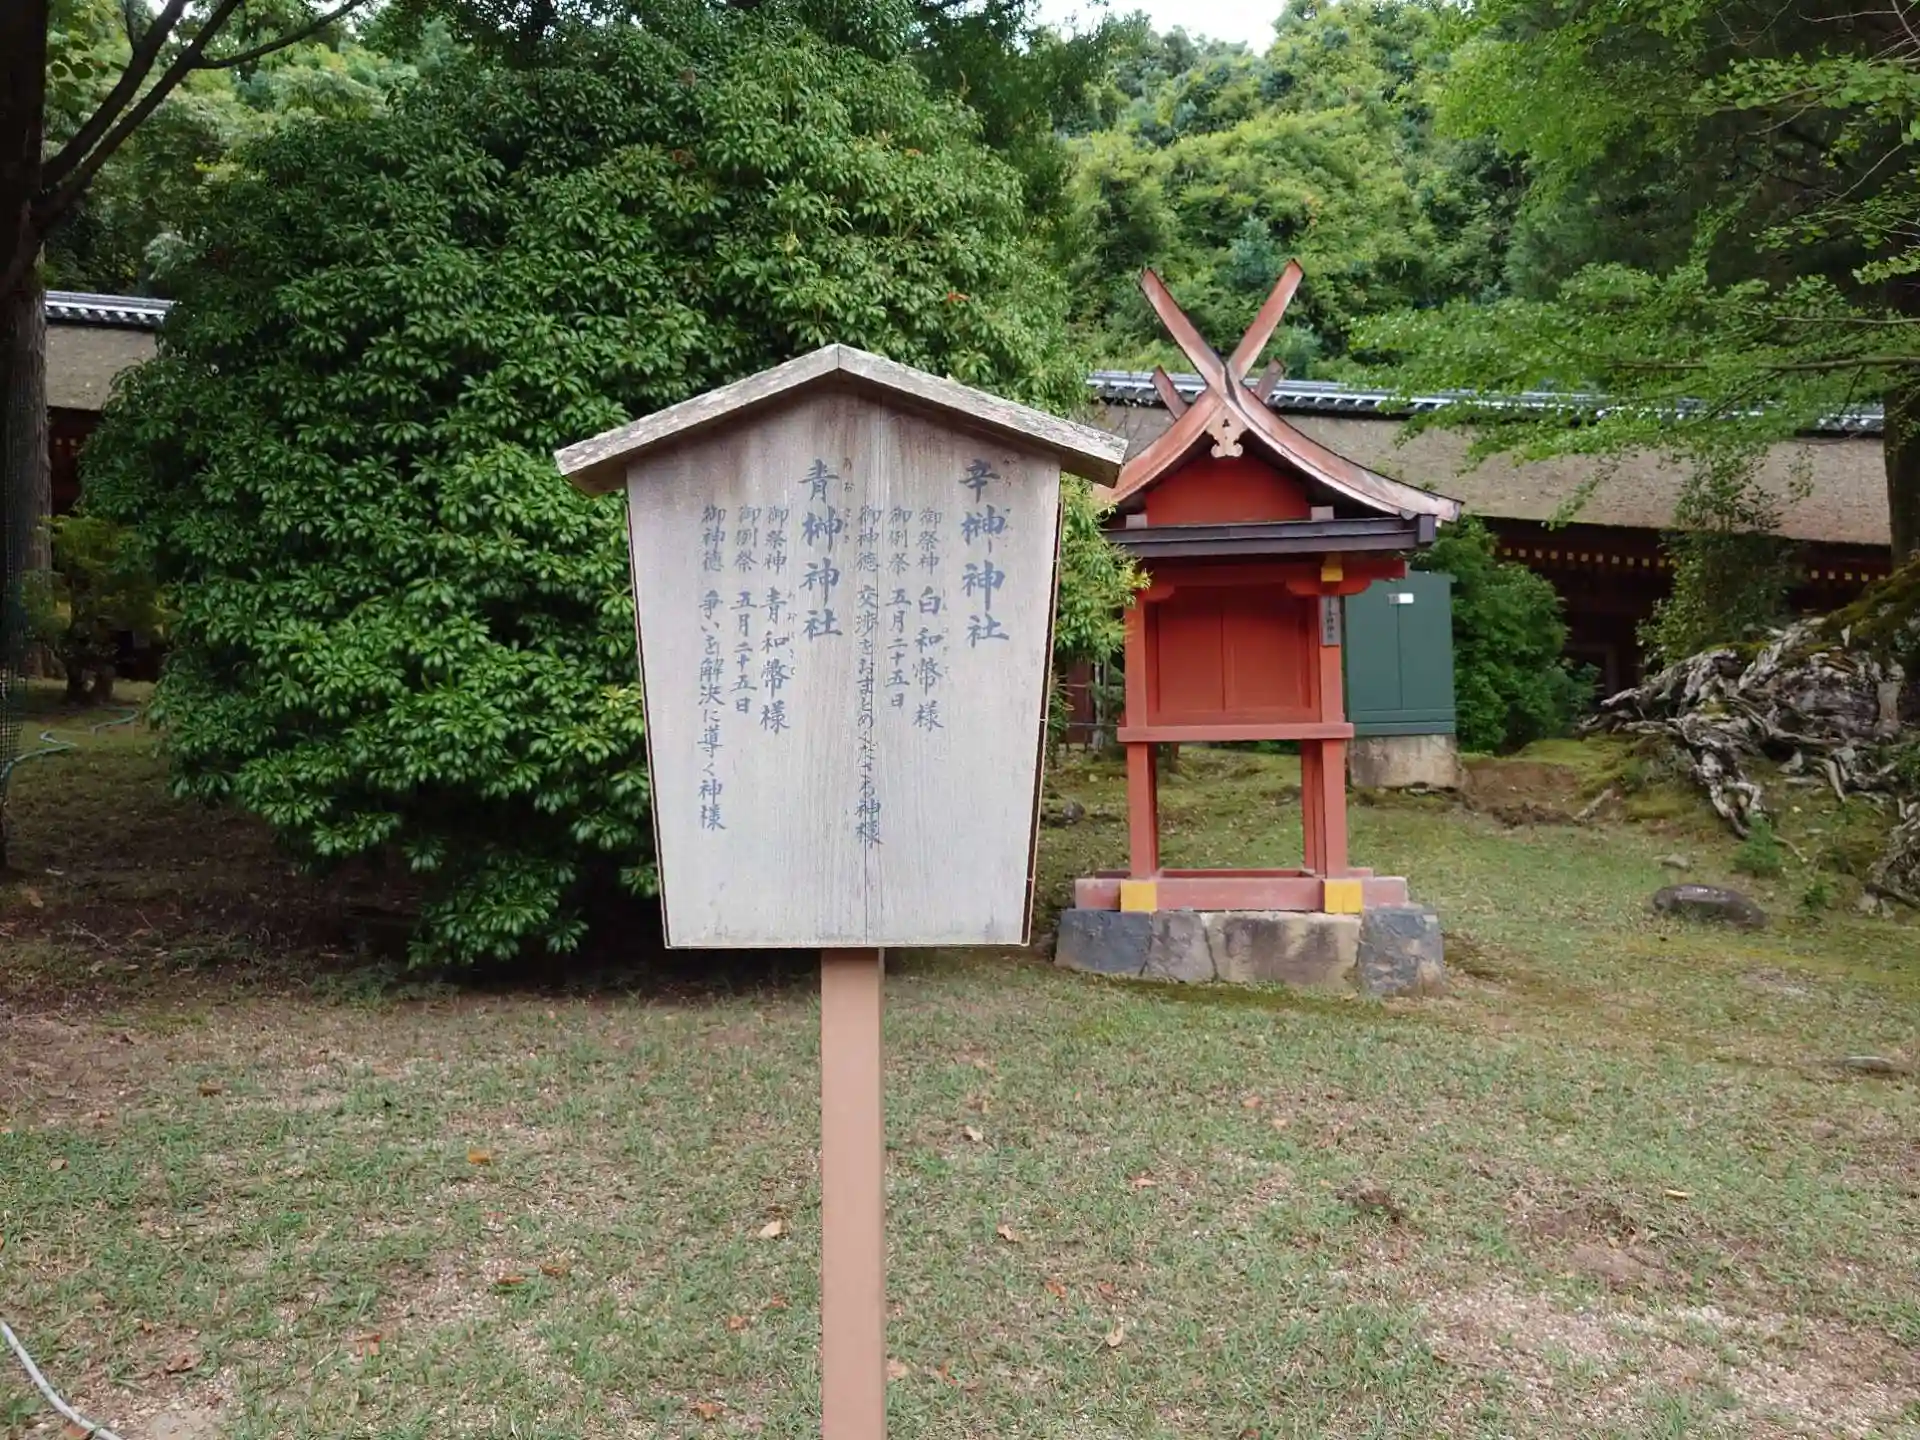 辛榊神社
御祭神 白和幣様
御例祭 五月二十五日
御神徳 交渉をおまとめくださる神様
青榊神社
あおさかき
御祭神 青和幣様
御例祭 五月二十五日
御神徳 争いを解決に導く神様